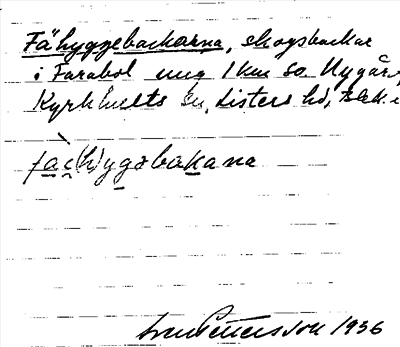 Fähyggebackarna, skogsbackar
i Farabol ung 1 km so Nygård,
Kyrkhults sn, Listers hd, Blek.
fac(h)ygəbakana
Sven Pettersson 1936